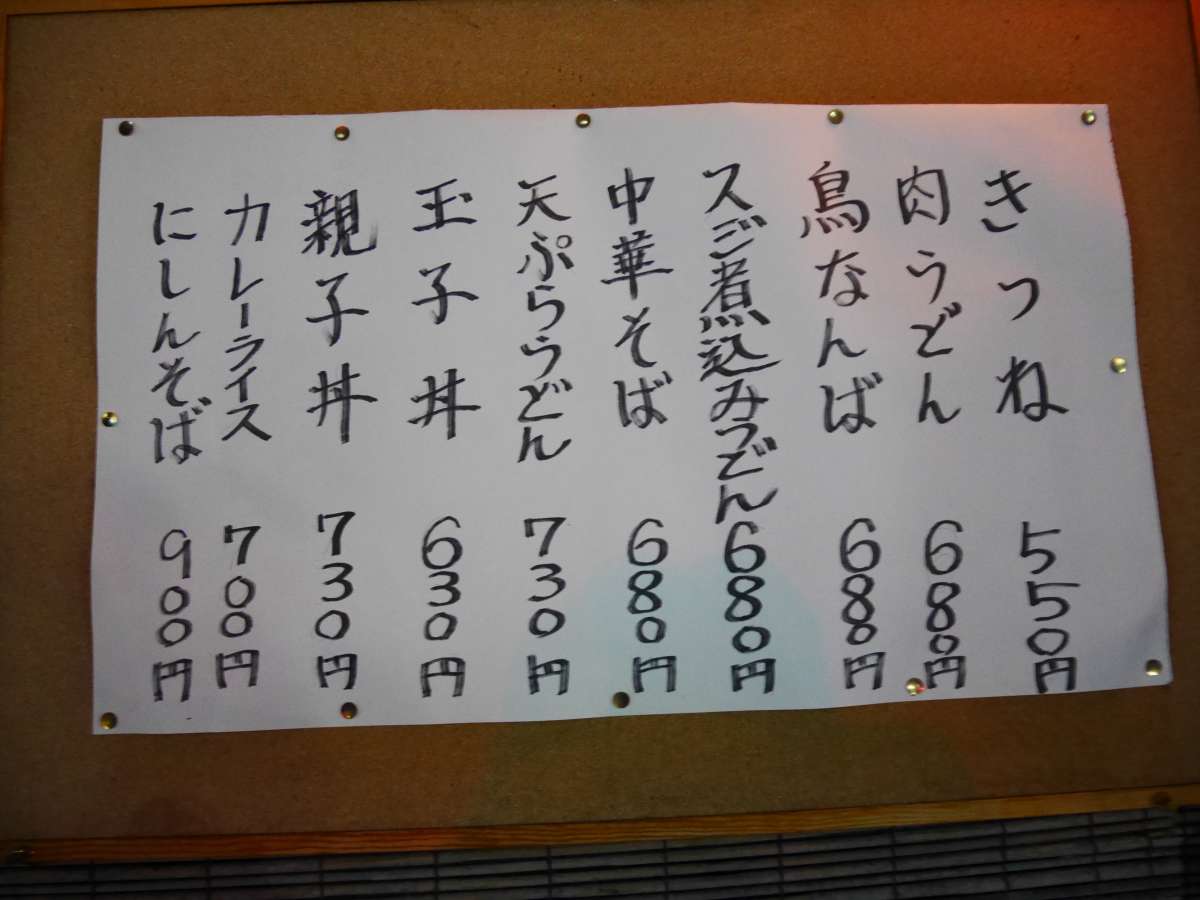 きつね 550円
肉うどん 680円
鳥なんば 680円
スご煮込みうどん 680円
中華そば 680円
天ぷらうどん 730円
玉子丼 630円
親子丼 730円
カレーライス 700円
にしんそば 900円